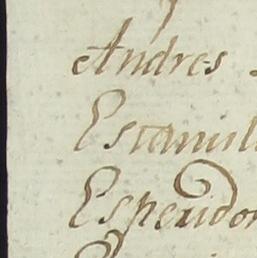 Andres
Estanisl
Esperidon